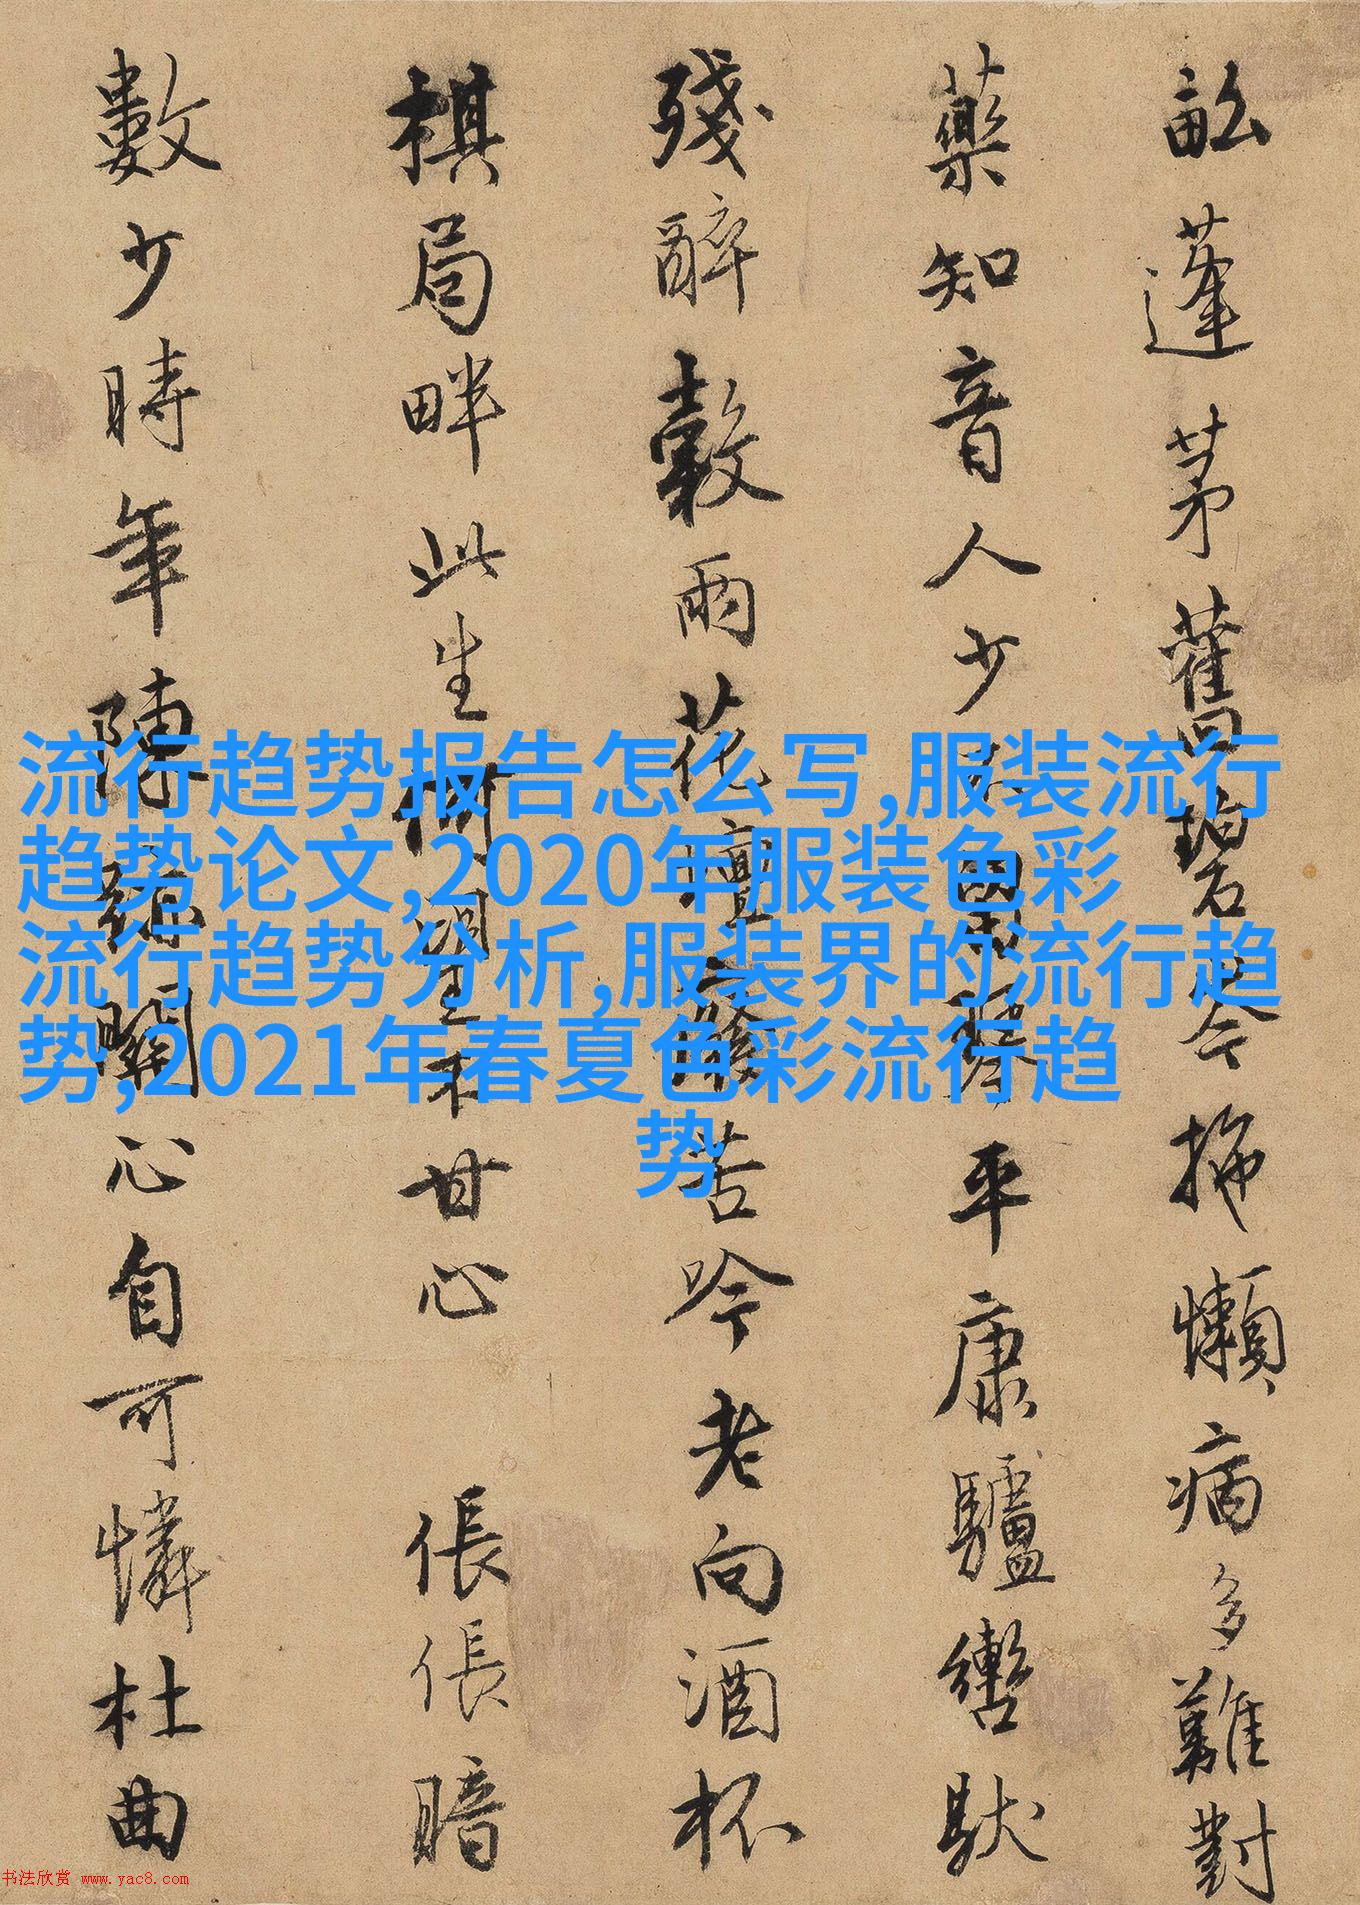 畆蓬茅舊碧岑拖懶病多難對
藥知音人少囊琴平康驢轡馱
殘醉穀雨花壇費苦吟老向酒杯
棋局畔此生何望不甘心 倀倀暗
數少時年陳跡關心自可憐杜曲
流行趋势报告怎么写,服装流行
趋势论文,2020年服装色彩
流行趋势分析,服装界的流行趋
势,2021年春夏色彩流行趋
势
书法欣赏 www.yac8.com